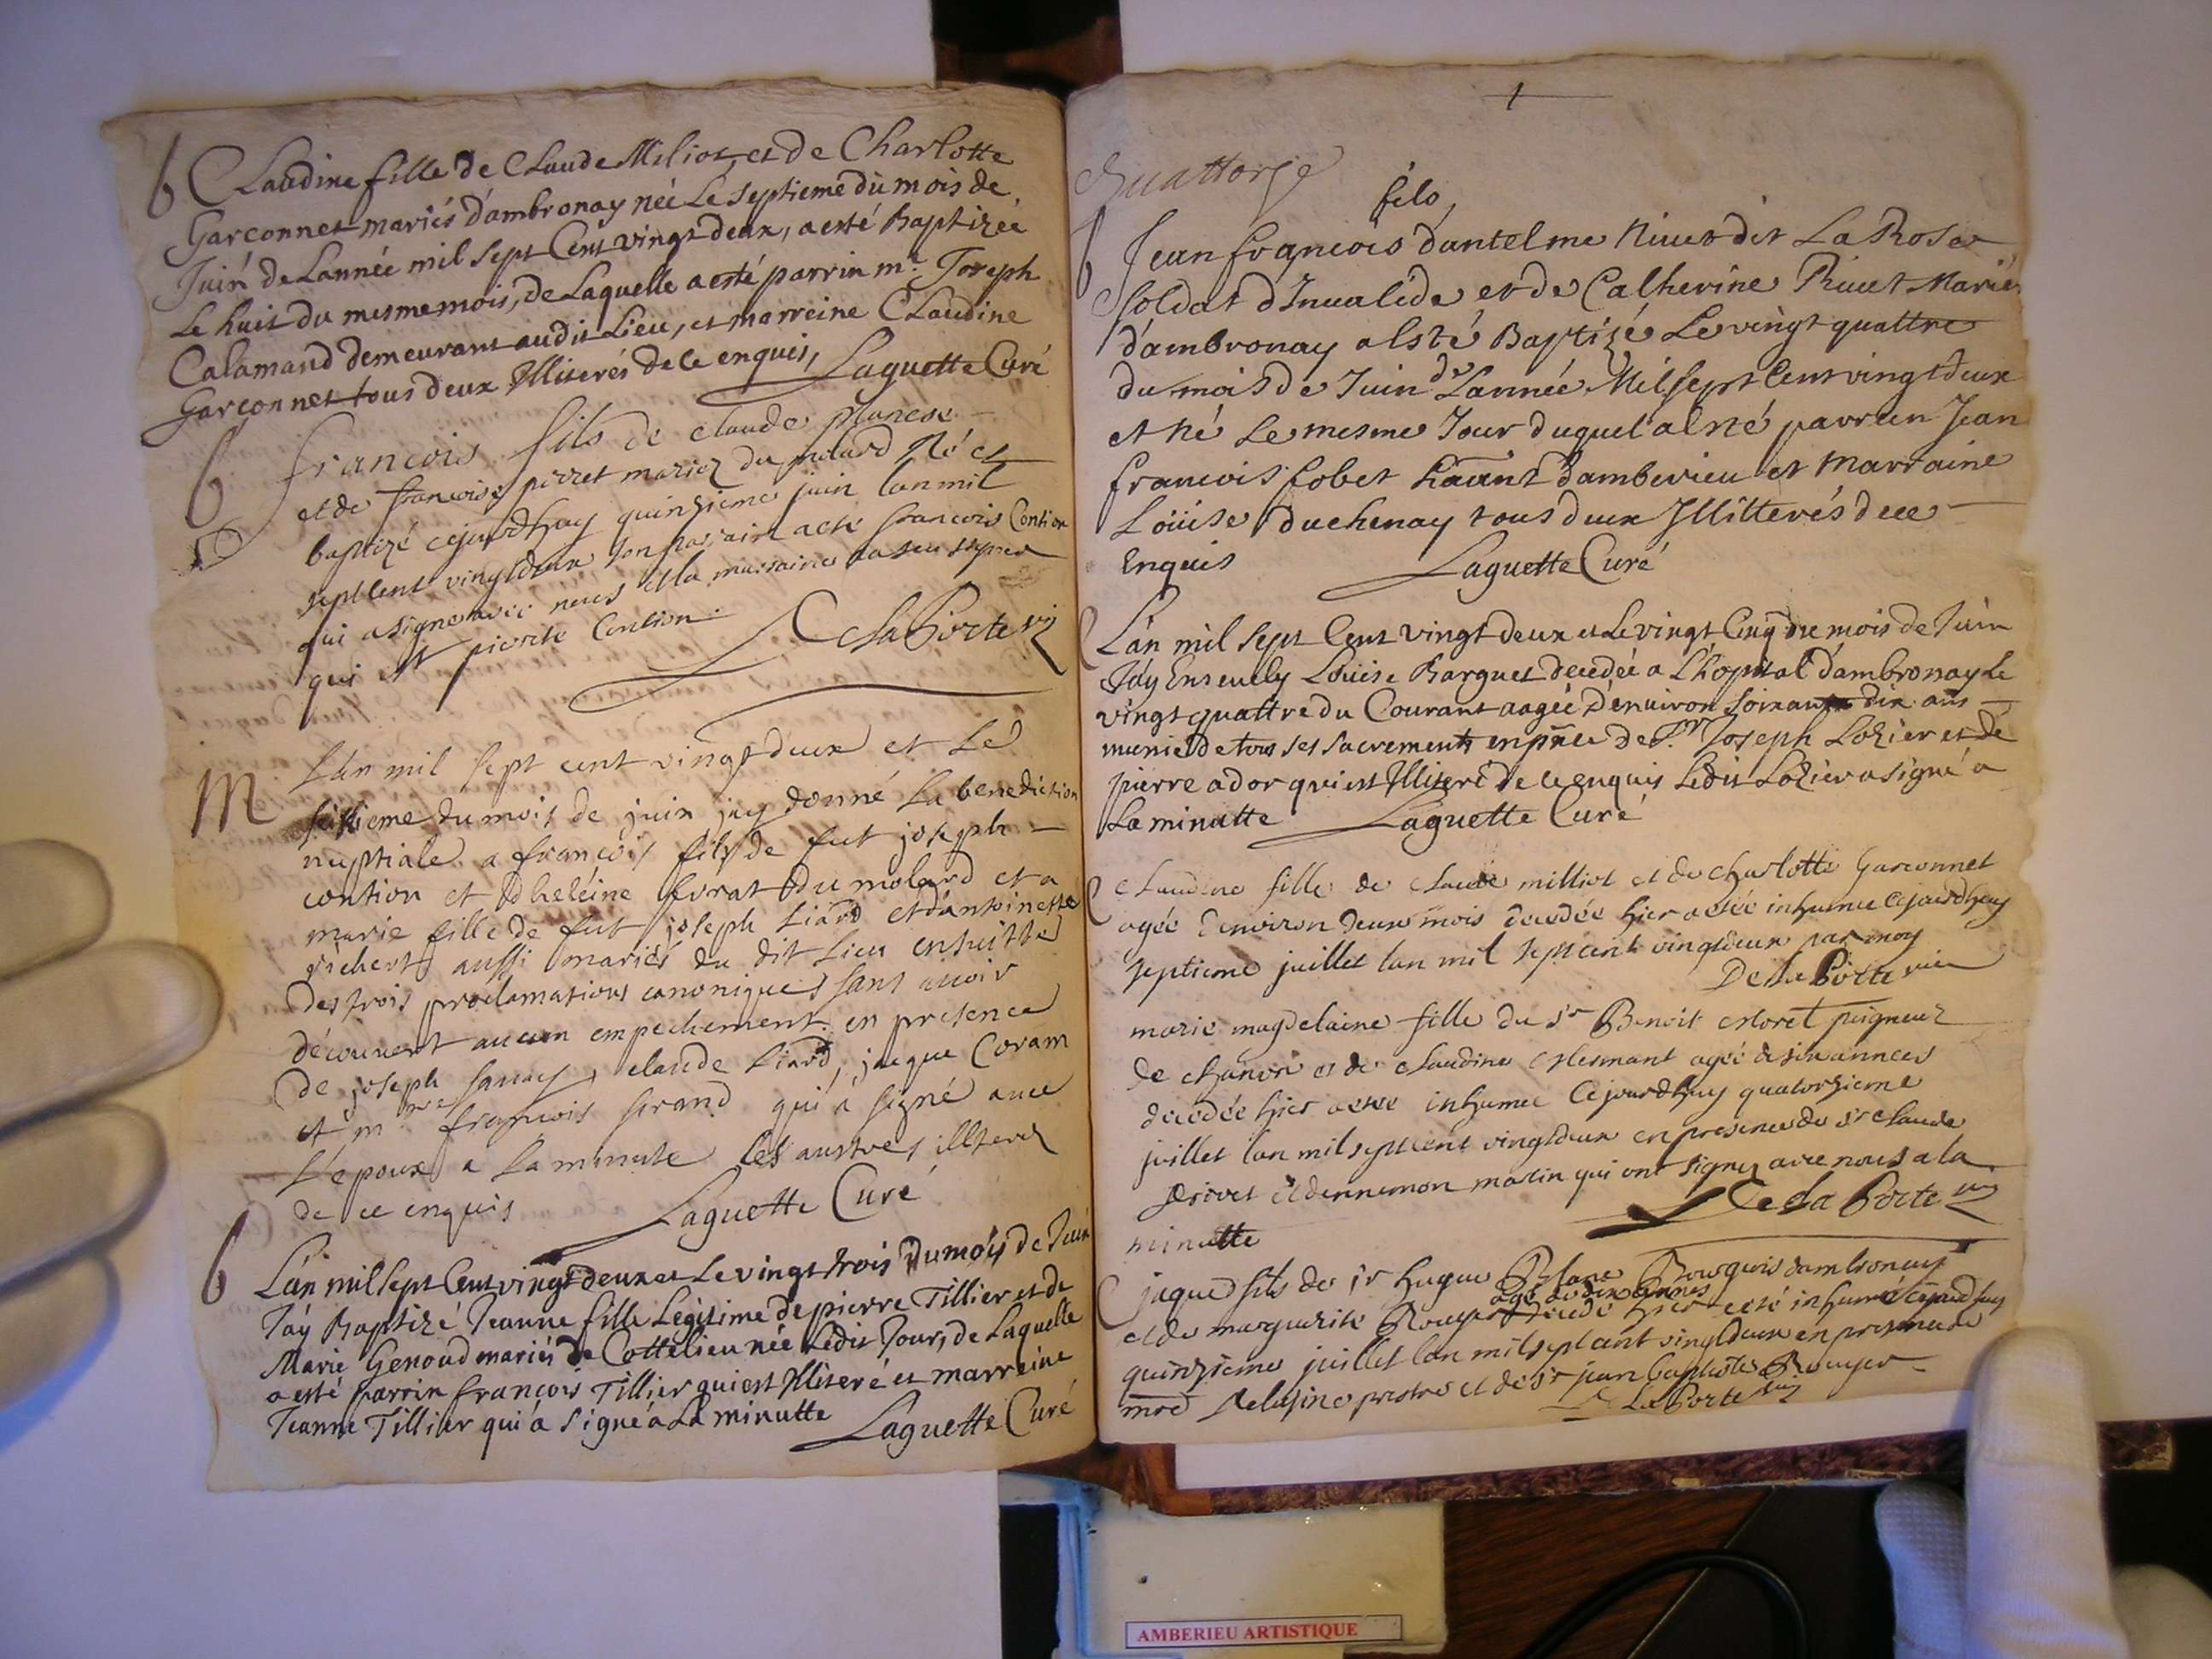 b Claudine fille de Claude Miliot, et de Charlotte
Garconnet mariés d'ambronay née Le septieme du mois de
Juin de Lannée mil sept Cent vingt deux, a esté Baptizée
Le huit du mesme mois, de Laquelle a esté parrin mr. Joseph
Calamand demeurant audit Lieu, et marreine Claudine
Garconnet tous deux Illiterés de ce enquis, Laguette Curé
b francois fils de claude
et de francoise pirret mariez du molard Né et
baptizé cejourdhuy quinzieme juin lan mil
sept cent vingt deux son parrain a esté francois Contion
qui a signe avec nous et la marraine na seu signer
qui est pierette Contion. De La Porte vic
M L'an mil sept cent vingt deux et Le
seizieme du mois de juin jay donné La benediction
nuptiale a francois fils de fut joseph
contion et d'heléine du molard et a
marie fille de fut joseph Liard et d'antoinette
aussi mariés du dit Lieu ensuitte
des trois proclamations canoniques sans avoir
découvert aucun empechement en presence
de joseph claude Liard, jaque Coram
et m.re francois sirand qui a signé avec
L'epoux a La minute les austres illterez
de ce enquis Laguette Curé
b L'an mil sept Cent vingt deux et Le vingt trois du mois de Juin
J'ay Baptizé Jeanne fille Legitime de pierre Tillier et de
Marie Genoud mariés de Cottelieu née Ledit Jour, de Laquelle
a esté parrin francois Tillier qui est Illiteré et marreine
Jeanne Tillier qui á signé a La minutte Laguette Curé
1
Quattorze
fils
b Jean francois d'antelme Rivet dit La Rose
soldat d'Invalide et de Catherine Rivet Mariés
d'ambronay a Esté Baptizé Le vingt quattre
du mois de Juin de Lannée Mil sept Cent vingt deux
et né Le mesme Jour duquel a Esté parrein Jean
francois d'amberieu et Marraine
Loüise duchenay tous deux Jllitterés de ce
Enquis Laguette Curé
L'an mil sept Cent vingt deux et Le vingt Cinq du mois de Juin
J'ay Ensevely Loüise Barguet decedée a L'hopital d'ambronay Le
vingt quattre du Courant aagée D'environ soixante dix ans
munie de tous ses sacrements en pñce de Sr. Joseph Lozier et de
pierre ador qui est Illiteré de ce enquis Ledit Lozier a signé a
La minutte Laguette Curé
Claudine fille de claude milliot et de charlotte Garconnet
agée d'environ deux mois decedée hier a esté inhumee cejourdhuy
septieme juillet lan mil sept cent vingt deux par moy
De La Porte vic
marie magdelaine fille du sr Benoit moret peigneur
de chanvre et de claudine agée de six années
decedée hier a esté inhumee Cejourdhuy quatorzieme
juillet lan mil sept cent vingt deux en presence du sr claude
et dennemon matin qui ont signez avec nous a la
minutte De La Porte vic
jaque fils de sr hugue Blanc Bourgeois dambronay
agé de dix années
et de marguerite Rouyer decedé hier a esté inhumé cejourdhuy
quinzieme juillet lan mil sept cent vingt deux en presence de
prestre et de sr jean baptiste Rouyer
De La Porte vic
AMBERIEU ARTISTIQUE